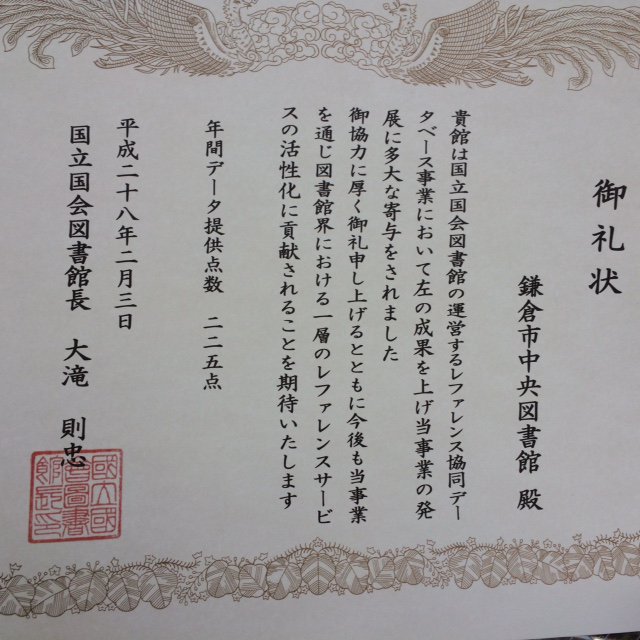 御礼状
鎌倉市中央図書館 殿
貴館は国立国会図書館の運営するレファレンス協同デー
タベース事業において左の成果を上げ当事業の発
展に多大な寄与をされました
御協力に厚く御礼申し上げるとともに今後も当事業
を通じ図書館界における一層のレファレンスサービ
スの活性化に貢献されることを期待いたします
年間データ提供点数 二二五点
平成二十八年二月三日
国立国会図書館長 大滝 則忠